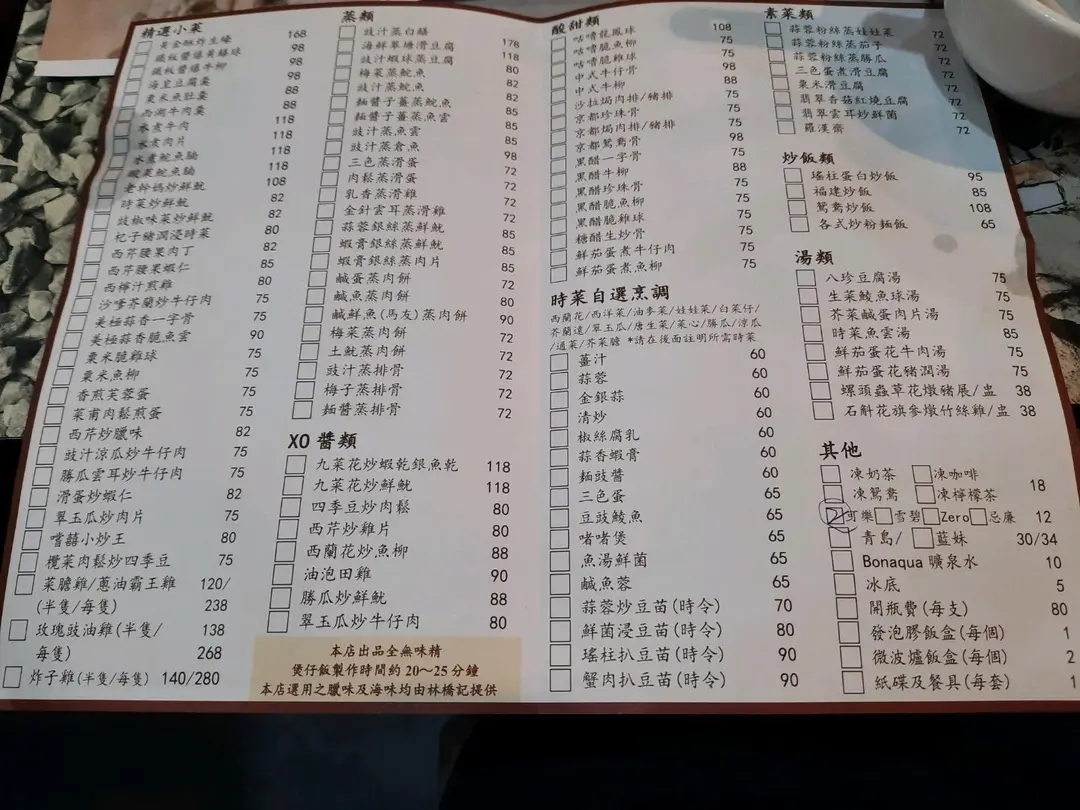 精選小菜
黃金酥炸生蠔 168
鐵板醬爆黃鱔球 98
鐵板醬爆牛柳 98
海皇豆腐羹 98
粟米魚肚羹 88
西湖牛肉羹 88
水煮牛肉 118
水煮肉片 118
水煮鯇魚腩 118
酸菜鯇魚腩 118
老幹媽炒鮮魷 108
時菜炒鮮魷 82
豉椒味菜炒鮮魷 82
杞子豬潤浸時菜 80
西芹腰果肉丁 82
西芹腰果蝦仁 85
西檸汁煎雞 80
沙嗲芥蘭炒牛仔肉 75
美極蒜香一字骨 75
美極蒜香脆魚雲 90
粟米脆雞球 75
粟米魚柳 75
香煎芙蓉蛋 75
菜甫肉鬆煎蛋 75
西芹炒臘味 82
豉汁涼瓜炒牛仔肉 75
勝瓜雲耳炒牛仔肉 75
滑蛋炒蝦仁 82
翠玉瓜炒肉片 75
嚐囍小炒王 80
欖菜肉鬆炒四季豆 75
菜膽雞/蔥油霸王雞 120/
(半隻/每隻) 238
玫瑰豉油雞(半隻/ 138
每隻) 268
炸子雞(半隻/每隻) 140/280
蒸類
豉汁蒸白鱔 178
海鮮翠塘滑豆腐 118
豉汁蝦球蒸豆腐 80
梅菜蒸鯇魚 82
豉汁蒸鯇魚 82
麵醬子薑蒸鯇魚 85
麵醬子薑蒸魚雲 85
豉汁蒸魚雲 85
豉汁蒸倉魚 98
三色蒸滑蛋 72
肉鬆蒸滑蛋 72
乳香蒸滑雞 72
金針雲耳蒸滑雞 85
蒜蓉銀絲蒸鮮魷 85
蝦膏銀絲蒸鮮魷 85
蝦膏銀絲蒸肉片 75
鹹蛋蒸肉餅 75
鹹魚蒸肉餅 80
鹹鮮魚(馬友)蒸肉餅 90
梅菜蒸肉餅 72
土魷蒸肉餅 72
豉汁蒸排骨 72
梅子蒸排骨 72
麵醬蒸排骨 72
XO 醬類
九菜花炒蝦乾銀魚乾 118
九菜花炒鮮魷 118
四季豆炒肉鬆 80
西芹炒雞片 80
西蘭花炒魚柳 88
油泡田雞 90
勝瓜炒鮮魷 88
翠玉瓜炒牛仔肉 80
本店出品全無味精
煲仔飯製作時間約 20～25 分鐘
本店選用之臘味及海味均由林橋記提供
酸甜類
咕嚕龍鳳球 108
咕嚕脆魚柳 75
咕嚕脆雞球 75
中式牛仔骨 98
中式牛柳 88
沙拉焗肉排/豬排 75
京都珍珠骨 75
京都焗肉排/豬排 75
京都鴛鴦骨 98
黑醋一字骨 75
黑醋牛柳 88
黑醋珍珠骨 75
黑醋脆魚柳 75
黑醋脆雞球 75
糖醋生炒骨 75
鮮茄蛋煮牛仔肉 75
鮮茄蛋煮魚柳 75
時菜自選烹調
西蘭花/西洋菜/油麥菜/娃娃菜/白菜仔/
芥蘭遠/翠玉瓜/唐生菜/菜心/勝瓜/涼瓜
/通菜/芥菜膽 *請在後面註明所需時菜
薑汁 60
蒜蓉 60
金銀蒜 60
清炒 60
椒絲腐乳 60
蒜香蝦膏 60
麵豉醬 60
三色蛋 65
豆豉鯪魚 65
啫啫煲 65
魚湯鮮菌 65
鹹魚蓉 65
蒜蓉炒豆苗(時令) 70
鮮菌浸豆苗(時令) 80
瑤柱扒豆苗(時令) 90
蟹肉扒豆苗(時令) 90
素菜類
蒜蓉粉絲蒸娃娃菜 72
蒜蓉粉絲蒸茄子 72
蒜蓉粉絲蒸勝瓜 72
三色蛋煮滑豆腐 72
粟米滑豆腐 72
翡翠香菇紅燒豆腐 72
翡翠雲耳炒鮮菌 72
羅漢齋 72
炒飯類
瑤柱蛋白炒飯 95
福建炒飯 85
鴛鴦炒飯 108
各式炒粉麵飯 65
湯類
八珍豆腐湯 75
生菜鯪魚球湯 75
芥菜鹹蛋肉片湯 75
時菜魚雲湯 85
鮮茄蛋花牛肉湯 75
鮮茄蛋花豬潤湯 75
螺頭蟲草花燉豬展/盅 38
石斛花旗參燉竹絲雞/盅 38
其他
凍奶茶 凍咖啡
凍鴛鴦 凍檸檬茶 18
可樂 雪碧 Zero 忌廉 12
青島/ 藍妹 30/34
Bonaqua 礦泉水 10
冰底 5
開瓶費(每支) 80
發泡膠飯盒(每個) 1
微波爐飯盒(每個) 2
紙碟及餐具(每套) 1